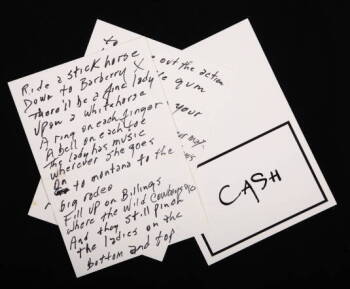 Ride a stick horse
Down to Barberry X
There'll be a fine lady
Upon a white horse
A ring on each finger
A bell on each toe
The lady has music
Wherever she goes
On to montana to the
big rodeo
Fill up on Billings
Where the Wild Cowboys
And they still
The ladies on the
Bottom and top
to
out the action
gum
your
CASH